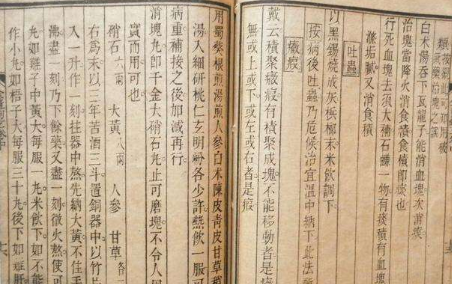 白朮湯吞下瓦龍子能消血塊次消痰
治塊當降火消食積食積即痰也
行死血塊去須大補石一物有痰積有血塊
滌垢膩又消食積
吐蟲
以黑錫燒灰檳榔末米飲調下
按病後吐蟲乃危候治宜溫中補下此法
癥瘕
戴云積聚癥瘕有積聚成塊不能移動者是癥
無或上或下或左或右者是瘕
柴根煎湯煎人參白朮陳皮青皮甘草稍
湯入細研桃仁玄明粉各少許熱飲一服可
病重補接之後加減再行
消塊丸即千金大硝石丸止可磨塊不令人困
實而用可也
硝石六兩 大黃八兩 人參 甘草各
右為末以三年苦酒三斗置銅器中以竹
入一升作一刻拄器中熬先納大黃不住手
沸盡二刻乃下餘藥又盡一刻微火熬使可
丸如雞子中黃大每服一丸米飲下如不能
作小丸如梧子大每服三十丸後下如